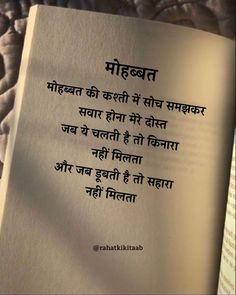 मोहब्बत
मोहब्बत की कश्ती में सोच समझकर
सवार होना मेरे दोस्त
जब ये चलती है तो किनारा
नहीं मिलता
और जब डूबती है तो सहारा
नहीं मिलता
@rahatkikitaab